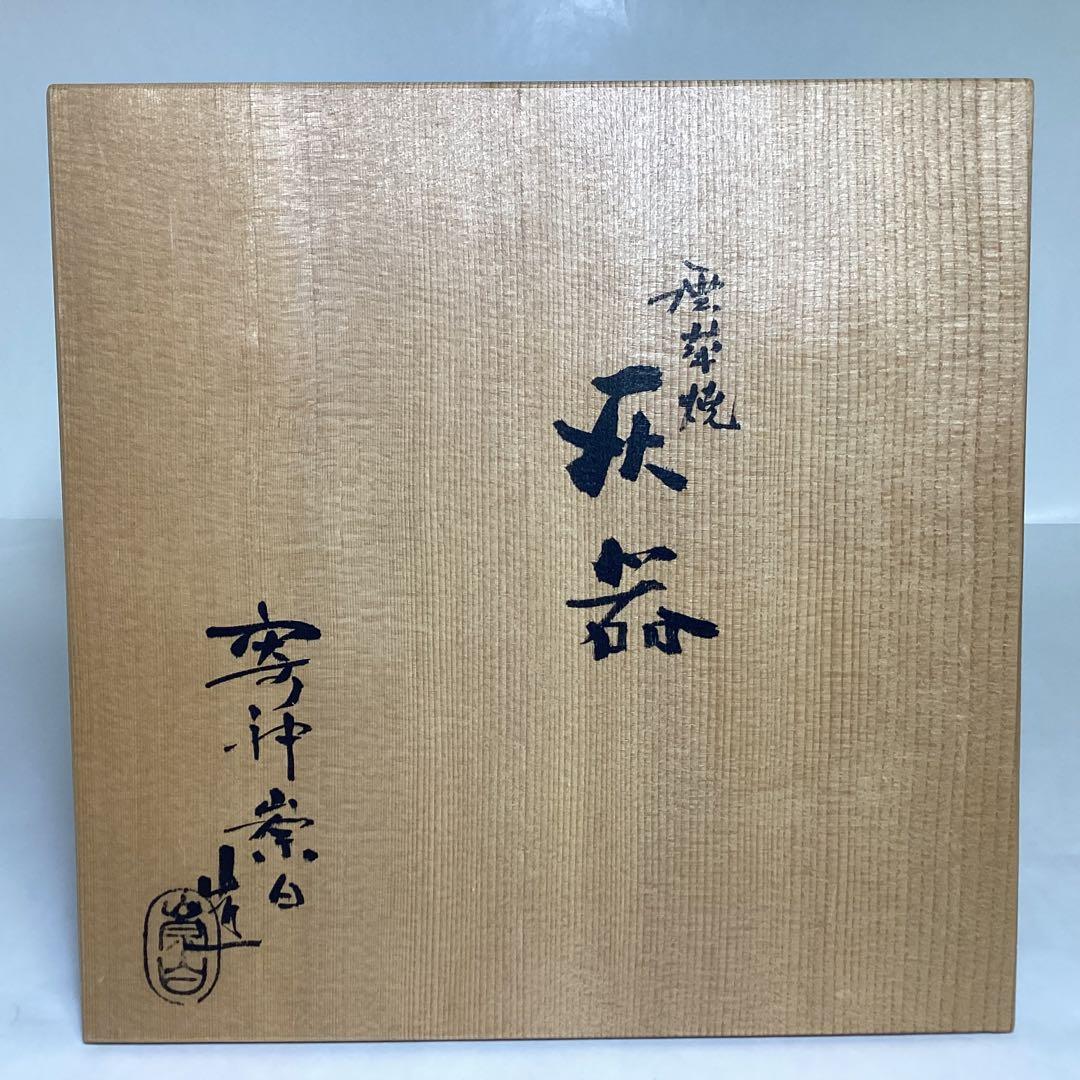 雲華焼
灰器
寄神崇白
造
崇白